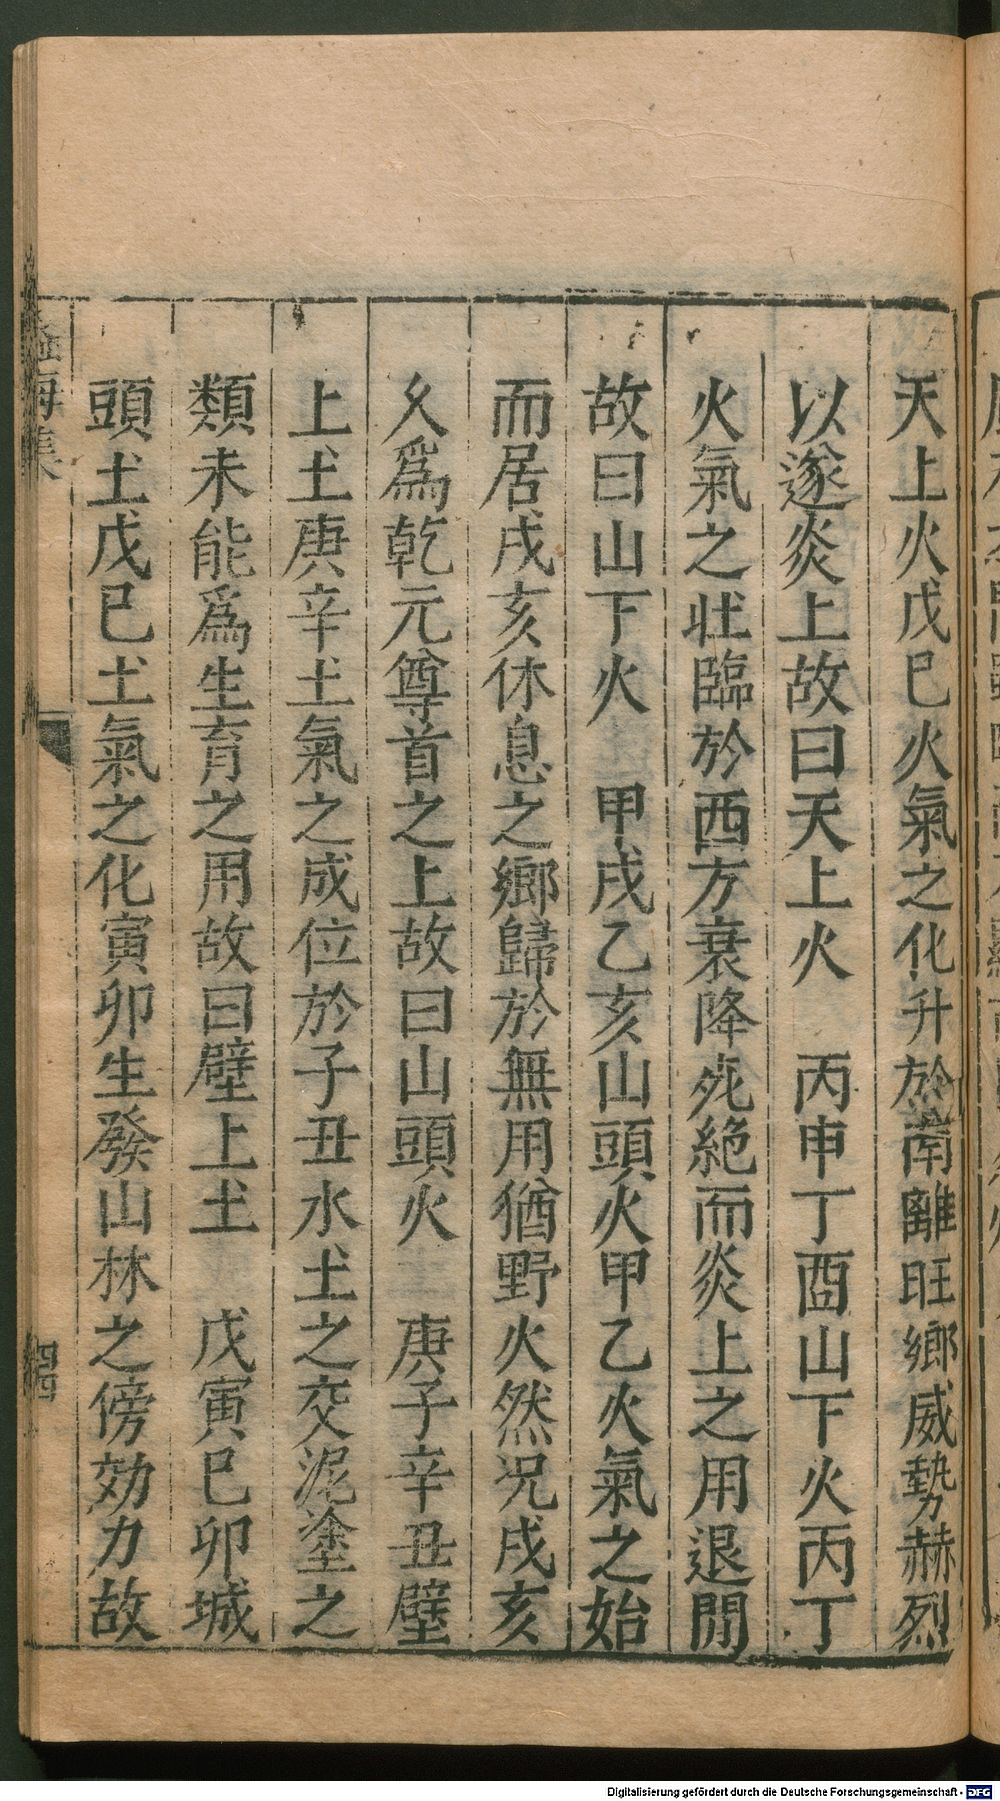 天上火戊巳火氣之化升於南離旺鄉威勢赫烈
以遂炎上故曰天上火　丙申丁酉山下火丙丁
火氣之壯臨於西方衰降死絶而炎上之用退閒
故曰山下火　甲戌乙亥山頭火甲乙火氣之始
而居戌亥休息之鄉歸於無用猶野火然况戌亥
乆爲乾元尊首之上故曰山頭火　庚子辛丑壁
上土庚辛土氣之成位於子丑水土之交泥塗之
類未能爲生育之用故曰壁上土　戊寅巳卯城
頭土戊巳土氣之化寅卯生發山林之傍効力故
海集
四四
Digitalisierung gefördert durch die Deutsche Forschungsgemeinschaft - DFG